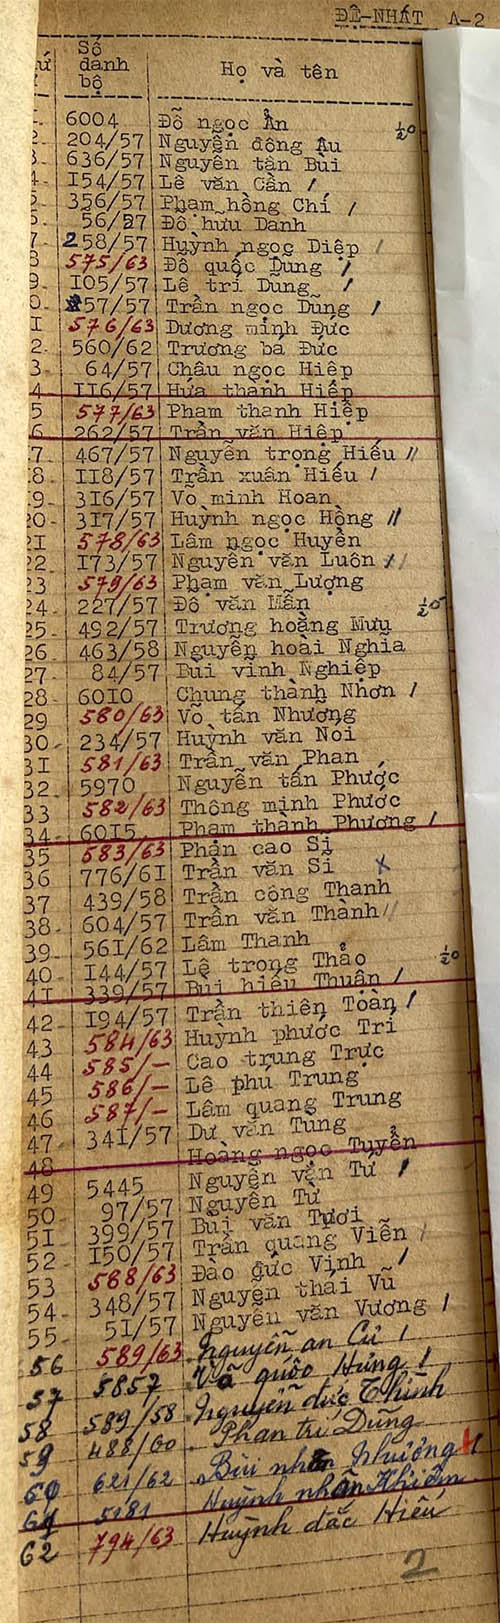 ĐỆ-NHẤT A-2
Số danh bộ Họ và tên
6004 Đỗ ngọc Ẩn
204/57 Nguyễn đông Âu
636/57 Nguyễn tân Bùi
154/57 Lê văn Cần
356/57 Phạm hồng Chí
56/57 Đỗ hữu Danh
258/57 Huỳnh ngọc Diệp
575/63 Đỗ quốc Dũng
105/57 Lê trí Dũng
57/57 Trần ngọc Dũng
576/63 Dương minh Đức
560/62 Trương bá Đức
64/57 Châu ngọc Hiệp
116/57 Hứa thành Hiệp
577/63 Phạm thanh Hiệp
262/57 Trần văn Hiệp
467/57 Nguyễn trọng Hiếu
118/57 Trần xuân Hiếu
316/57 Võ minh Hoan
317/57 Huỳnh ngọc Hồng
578/63 Lâm ngọc Huyền
22 173/57 Nguyễn văn Luôn
23 579/63 Phạm văn Lượng
24 227/57 Đỗ văn Mẫn
25 492/57 Trương hoàng Mưu
26 463/58 Nguyễn hoài Nghĩa
27 84/57 Bùi vĩnh Nghiệp
28 6010 Chung thành Nhơn
29 580/63 Võ tấn Nhường
30 234/57 Huỳnh văn Nói
31 581/63 Trần văn Phan
32 5970 Nguyễn tấn Phước
33 582/63 Thông minh Phước
34 6015 Phạm thành Phương
35 583/63 Phan cao Sĩ
36 776/61 Trần văn Sĩ
37 439/58 Trần công Thanh
38 604/57 Trần văn Thành
39 561/62 Lâm Thanh
40 144/57 Lê trọng Thảo
41 339/57 Bùi hiếu Thuận
42 194/57 Trần thiện Toàn
43 584/63 Huỳnh phước Trí
44 585/- Cao trung Trực
45 586/- Lê phú Trung
46 587/- Lâm quang Trung
47 341/57 Dư văn Tùng
48 Hoàng ngọc Tuyển
49 5445 Nguyễn văn Tư
50 97/57 Nguyễn Từ
51 399/57 Bùi văn Tươi
52 150/57 Trần quang Viễn
53 588/63 Đào đức Vinh
54 348/57 Nguyễn thái Vũ
55 51/57 Nguyễn văn Vương
56 589/63 Nguyễn an Cư
57 5857 Võ quốc Hưng
58 589/58 Nguyễn đức Thịnh
59 488/60 Phan trí Dũng
60 621/62 Bùi nhơn Nhường
61 5181 Huỳnh nhơn Khiêm
62 794/63 Huỳnh đắc Hiếu
2